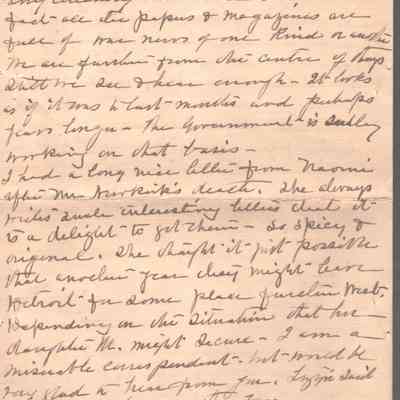 fact all the papers & magazines are
full of war news of one kind or another
We are further from the centre of things
Still we see & hear enough - It looks
as if it was to last months and perhaps
years longer - The Government is
working on that basis -
I had a long nice letter from Naomi
after Mr. Newkirk's death. She always
writes such interesting letters that it
is a delight to get them - So spicy &
original. She thought it just possible
that another year they might leave
Detroit for some place further West.
Depending on the situation that her
daughter M. might secure - I am a
miserable correspondent - but would be
very glad to hear from you.